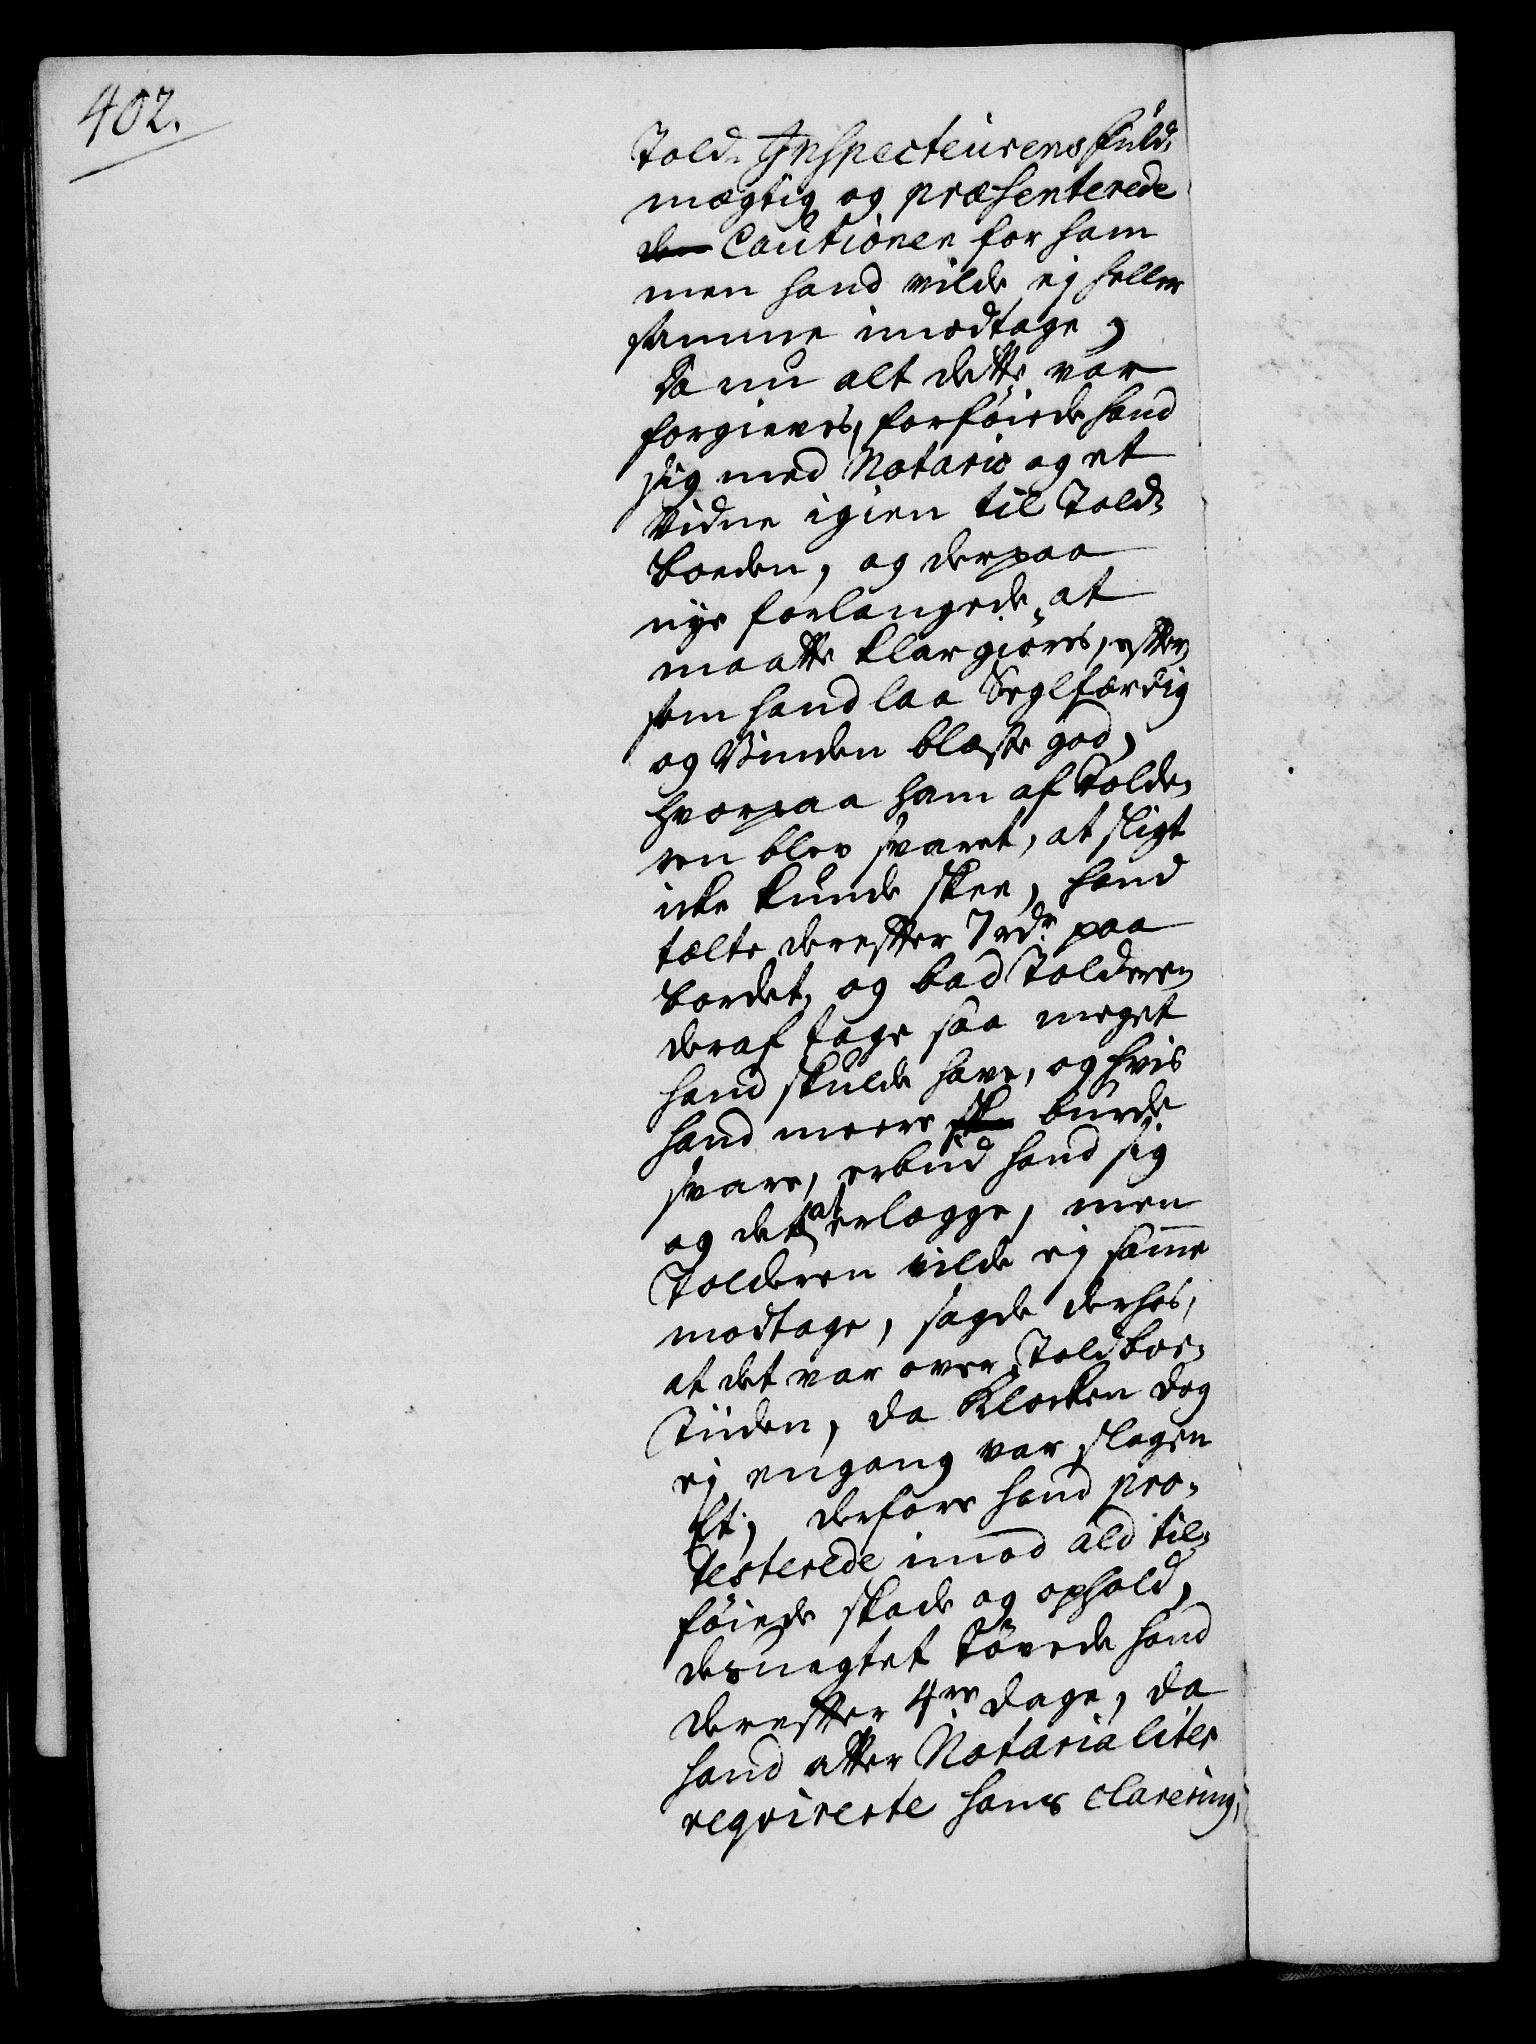 402.
Told-Inspecteurens fuld-
mægtig og præsenterede
den Cautionen for ham
men hand vilde ej heller
samme imodtage,
Da nu alt dette var
forgieves, forføiede hand
sig med Notario og et
Vidne igien til Told-
boeden, og derpaa
nye forlangede, at
maatte klargiøres, efter
som hand laa Seglfærdig
og Vinden blæste god,
hvorpaa ham af Tolde-
ren blev svaret, at sligt
icke kunde skee, hand
talte derefter 7 rdr paa
bordet, og bad Tolderen
deraf tage saa meget
hand skulde have, og hvis
hand meere burde
svare, erbød hand sig
og det at erlægge, men
Tolderen vilde ej samme
modtage, sagde derhos,
at det var over Toldboe-
Tiiden, da Klocken dog
ej engang var slagen
Et, derfore hand pro-
testerede imod ald til-
føiede skade og ophold,
desuagtet tøvede hand
derefter 4re dage, da
hand atter Notarialiter
reqvirerte hans clarering,